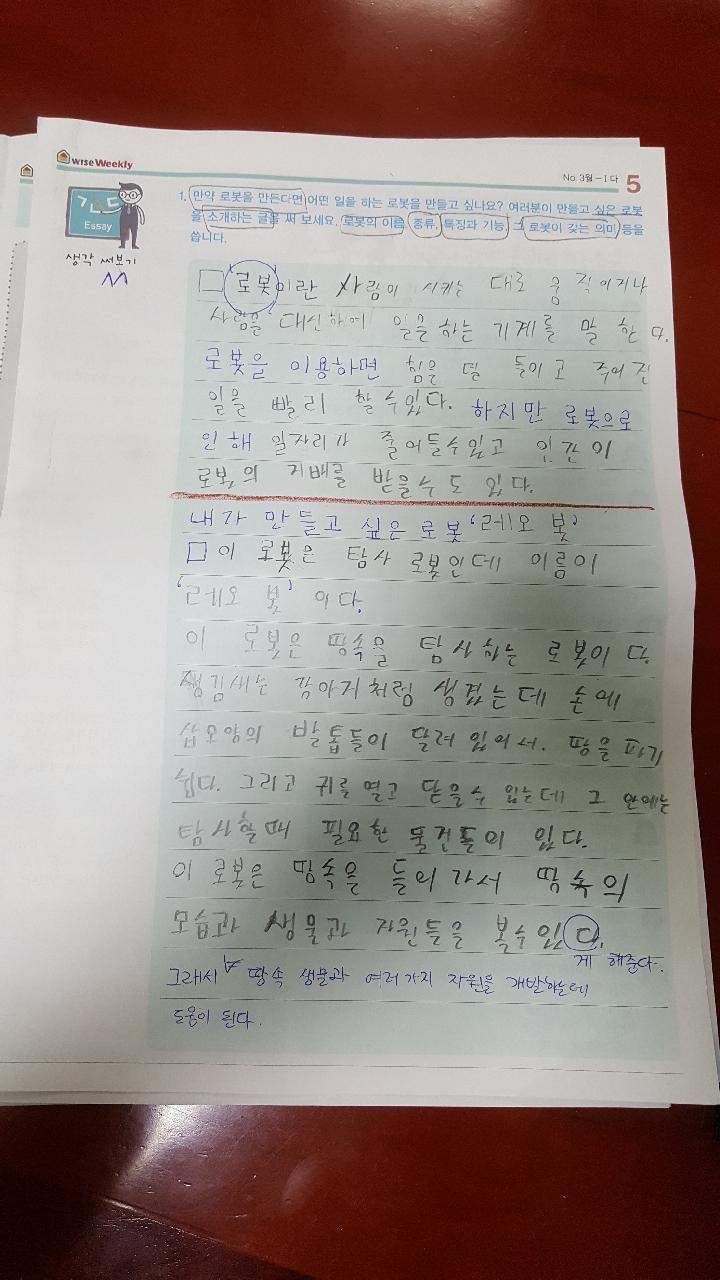 wise Weekly
No. 3월-Ⅰ다 5
Essay
생각 써보기
1. 만약 로봇을 만든다면 어떤 일을 하는 로봇을 만들고 싶나요? 여러분이 만들고 싶은 로봇
을 소개하는 글을 써 보세요. 로봇의 이름, 종류, 특징과 기능, 그 로봇이 갖는 의미 등을
씁니다.
'로봇'이란 사람이 시키는 대로 움직이거나
사람을 대신하에 일을 하는 기계를 말 한다.
로봇을 이용하면 힘을 덜 들이고 주어진
일을 빨리 할수있다. 하지만 로봇으로
인해 일자리가 줄어들수있고 인간이
로봇의 지배를 받을수도 있다.
내가 만들고 싶은 로봇 '레오 봇'
이 로봇은 탐사 로봇인데 이름이
'레오 봇' 이다.
이 로봇은 땅속을 탐사하는 로봇이다.
생김새는 강아지처럼 생겼는데 손에
삽모양의 발톱들이 달려 있어서. 땅을 파기
쉽다. 그리고 귀를 열고 닫을수 있는데 그 안에는
탐사할때 필요한 물건들이 있다.
이 로봇은 땅속을 들어가서 땅속의
모습과 생물과 자원들을 볼수있다.
게 해준다.
그래서 땅속 생물과 여러가지 자원을 개발하는데
도움이 된다.